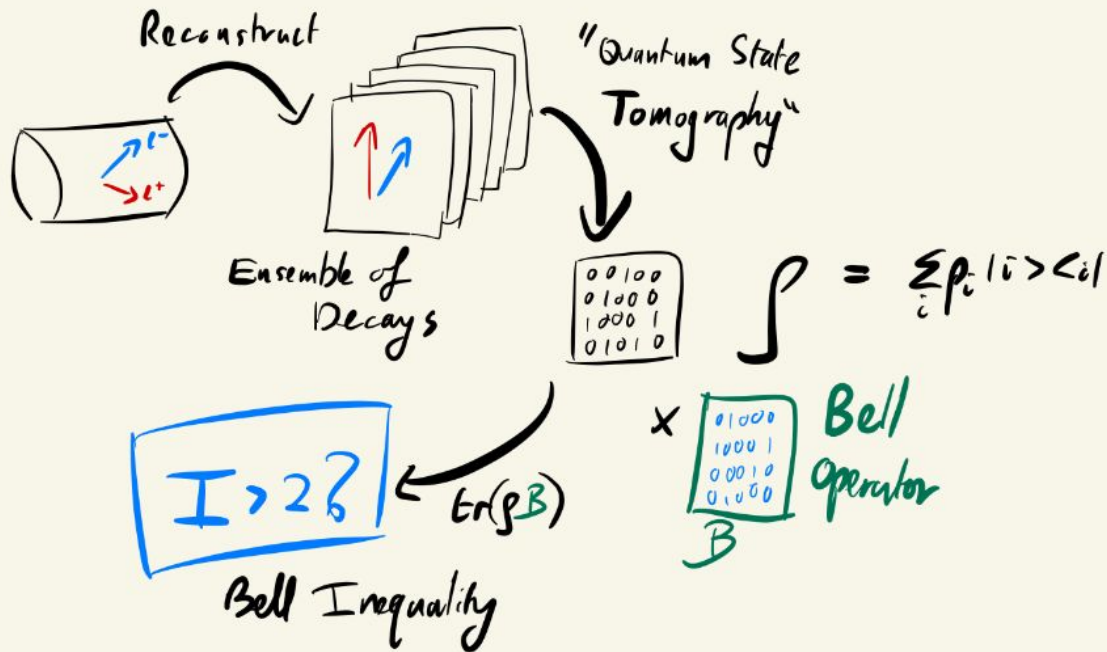 Reconstruct
"Quantum State
Tomography"
e-
e+
Ensemble of
Decays
0 0 1 0 0
0 1 0 0 0
1 0 0 0 1
0 1 0 1 0
ρ = Σ_i p_i |i><i|
x
0 1 0 0 0
1 0 0 0 1
0 0 0 1 0
0 1 0 0 0
B
Bell
Operator
tr(ρB)
I > 2?
Bell Inequality